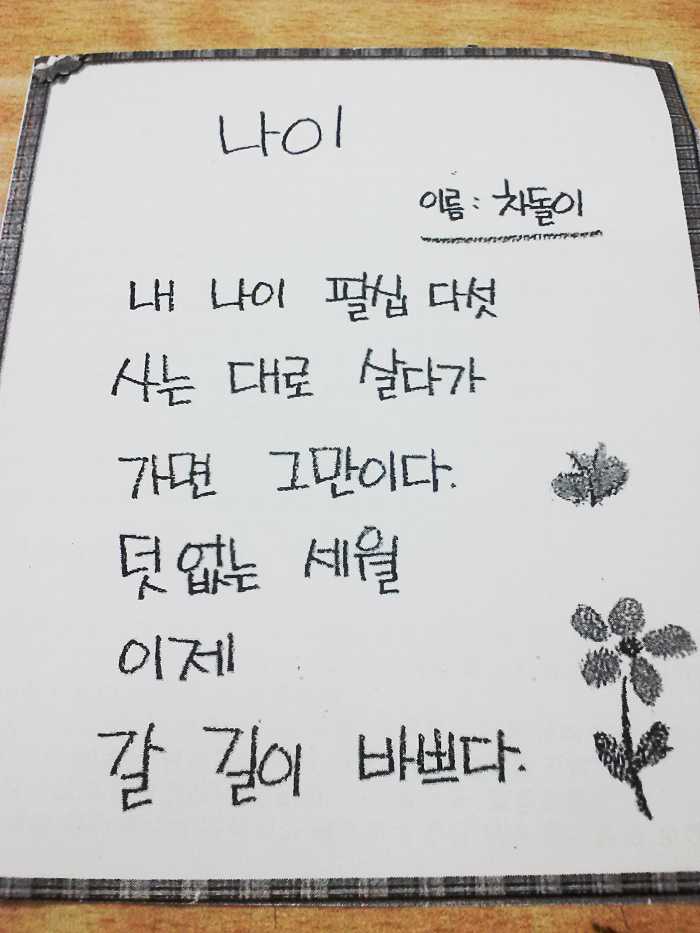 나이
이름 : 차돌이
내 나이 팔십 다섯
사는 대로 살다가
가면 그만이다.
덧없는 세월
이제
갈 길이 바쁘다.